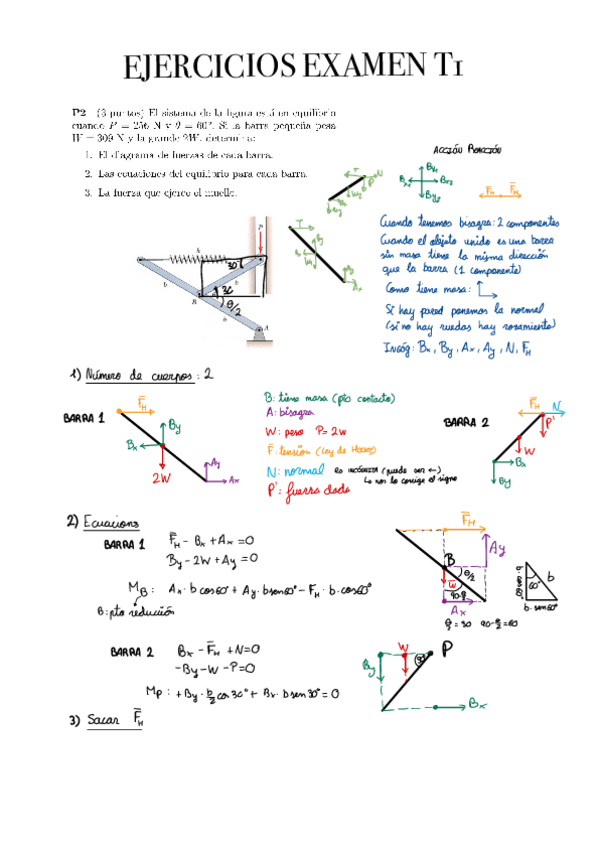 EJERCICIOS EXAMEN T1
P2 (3 puntos) El sistema de la figura está en equilibrio
cuando P = 256 N y θ = 60º. Si la barra pequeña pesa
W = 309 N y la grande 2W, determina:
1. El diagrama de fuerzas de cada barra.
2. Las ecuaciones del equilibrio para cada barra.
3. La fuerza que ejerce el muelle.
ACCIÓN REACCIÓN
Cuando tenemos bisagra: 2 componentes
Cuando el objeto unido es una barra
sin masa tiene la misma dirección
que la barra (1 componente)
Como tiene masa:
Si hay pared ponemos la normal
(si no hay ruedas hay rozamiento)
Incóg: Bx, By, Ax, Ay, N, FH
P
k
30
b
B
30
b
θ/2
b
A
1) Número de cuerpos: 2
BARRA 1
FH
By
Bx
2W
Ay
Ax
B: tiene masa (pto contacto)
A: bisagra
W: peso P=2w
F: tensión (Ley de Hooke)
N: normal es incógnita (puede ser ←)
↳ nos lo corrige el signo
P': fuerza dada
BARRA 2
FH
N
P'
W
Bx
By
2) Ecuacions
BARRA 1
FH - Bx + Ax = 0
By - 2W + Ay = 0
MB: Ax · b cos60º + Ay · b sen60º - FH · b · cos60º
B: pto reducción
FH
Ay
B
θ/2
W
90-θ
Ax
b cos 60
60º
b
b · sen60º
θ/2 = 30 90-θ/2 = 60
BARRA 2
Bx - FH + N = 0
-By - W - P = 0
MP: + By · b/2 cos 30º + Bx · b sen 30º = 0
W
P
By
30
Bx
3) Sacar FH